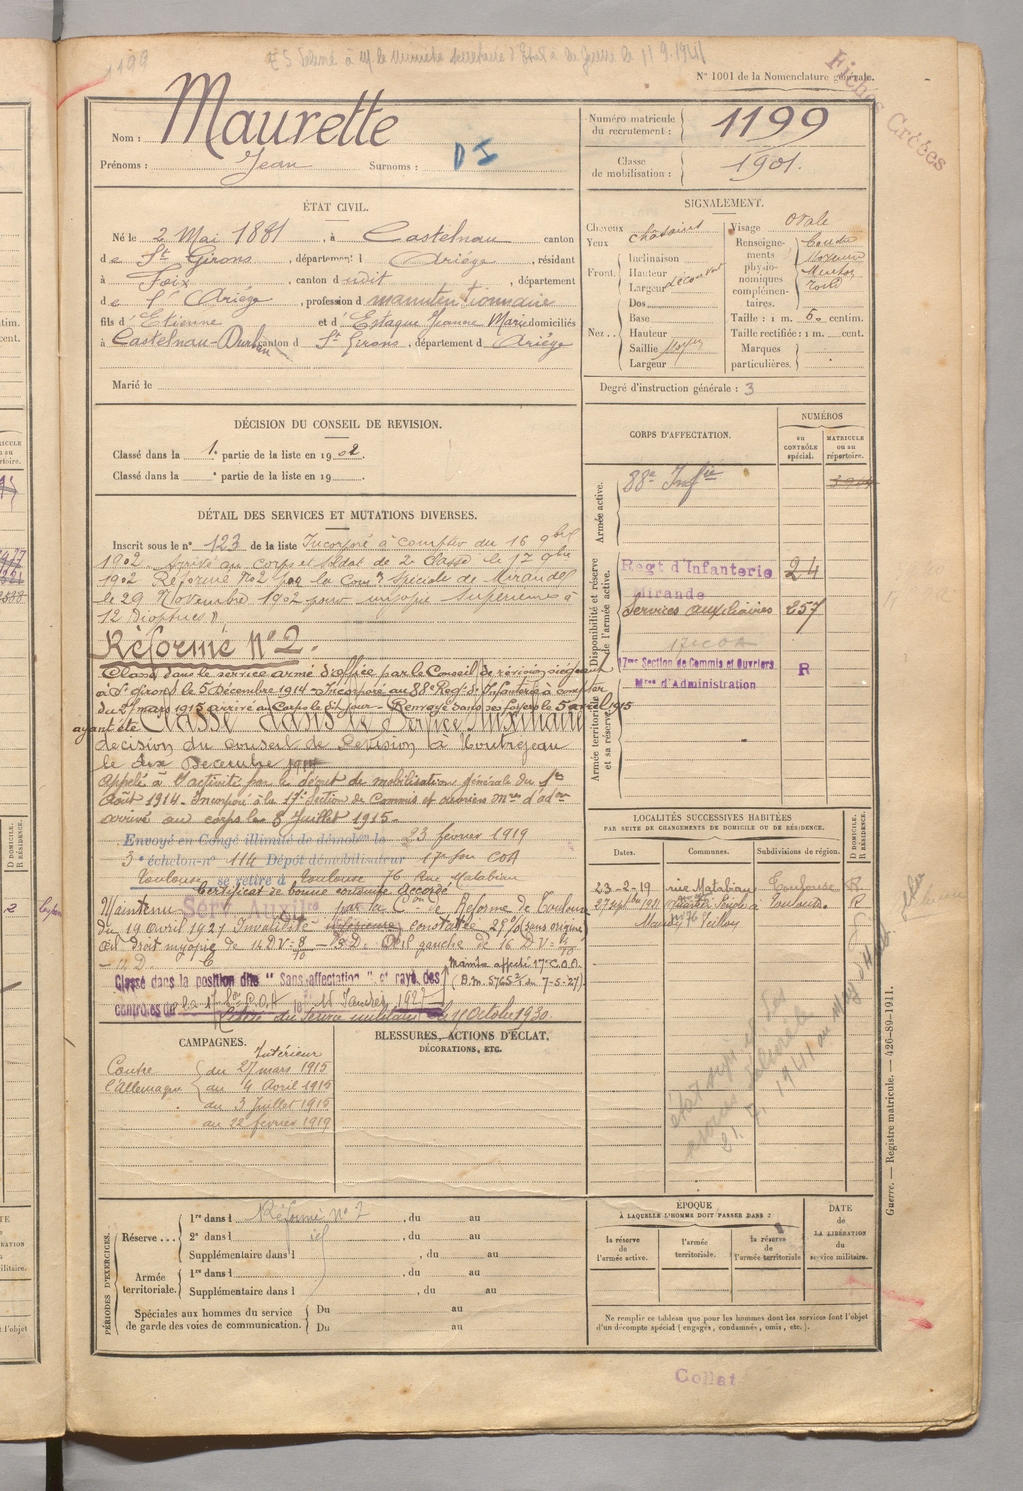 1199
le 11.9.1941
N° 1001 de la Nomenclature générale.
Fichés Créées
Nom : Maurette
Prénoms : Jean Surnoms :
D I
Numéro matricule du recrutement : 1199
Classe de mobilisation : 1901.
ÉTAT CIVIL.
Né le 2 Mai 1881, à Castelnau canton
de St Girons, département d Ariège, résidant
à Foix, canton d udit, département
de l'Ariège, profession d manutentionnaire
fils d' Etienne et d' Estaque Jeanne Marie domiciliés
à Castelnau-Durban canton d St Girons, département d Ariège
Marié le
SIGNALEMENT.
Cheveux châtains
Yeux
Front. Inclinaison
Hauteur
Largeur découvert
Nez.. Dos
Base
Hauteur
Saillie Moyen
Largeur
Visage ovale
Renseignements physionomiques complémentaires.
Menton
Taille : 1 m. 60 centim.
Taille rectifiée : 1 m. cent.
Marques particulières.
Degré d'instruction générale : 3
DÉCISION DU CONSEIL DE REVISION.
Classé dans la 1e partie de la liste en 1902.
Classé dans la ° partie de la liste en 19 .
DÉTAIL DES SERVICES ET MUTATIONS DIVERSES.
Inscrit sous le n° 123 de la liste Incorporé à compter du 16 9bre
1902. Arrivé au corps et soldat de 2e classe le 17 9bre
1902 Réformé n° 2 par la Comon Spéciale de Mirande
le 29 Novembre 1902 pour myopie supérieure à
12 dioptries
Réformé N° 2.
Classé dans le service armé d'office par le Conseil de révision siégeant
à St Girons le 5 Décembre 1914 - Incorporé au 88e Régt d'Infanterie à compter
du 27 mars 1915 arrivé au Corps le dit jour - Renvoyé dans ses foyers le 5 avril 1915
ayant été Classé dans le Service Auxiliaire
décision du Conseil de Révision à Montrejeau
le dix Décembre 1914
Appelé à l'activité par le décret de mobilisation générale du 1er
Août 1914 - Incorporé à la 17e Section de Commis et ouvriers mres d'adon
arrivé au corps le 8 Juillet 1915.-
Envoyé en Congé illimité de démobon le 23 février 1919
3e échelon n° 114 Dépôt démobilisateur 17e Son COA
Toulouse se retire à Toulouse 76 Rue Matabiau
Certificat de bonne conduite Accordé
Maintenu Serv. Auxilre par la Con de Réforme de Toulouse
du 19 avril 1927 Invalidité constatée 25% (sans origine)
Œil droit myopie de 14 D V = 8/10 Œil gauche de 16 D V = 4/10
Mainte affecté 17e C.O.A.
(B.M. 5765 7-5-27)
Classé dans la position dite "Sans affectation" et rayé des
contrôles de la 17 Son C.O.A le 15 Janvier 1927
Libéré du service militaire le 11 Octobre 1930
CORPS D'AFFECTATION.
NUMÉROS
au CONTRÔLE spécial.
MATRICULE ou au répertoire.
Armée active.
88e Infrie
Disponibilité et réserve de l'armée active.
Regt d'Infanterie 24
Mirande
Services auxiliaires 257
17 COA
Armée territoriale et sa réserve.
17me Section de Commis et Ouvriers R
Mres d'Administration
LOCALITÉS SUCCESSIVES HABITÉES
PAR SUITE DE CHANGEMENTS DE DOMICILE OU DE RÉSIDENCE.
Dates. Communes. Subdivisions de région. D DOMICILE. R RÉSIDENCE.
23-2-19 rue Matabiau Toulouse R
76
Toulouse R
CAMPAGNES.
Intérieur
Contre l'Allemagne
du 27 mars 1915
au 4 Avril 1915
du 3 Juillet 1915
au 22 février 1919
BLESSURES, ACTIONS D'ÉCLAT,
DÉCORATIONS, ETC.
PÉRIODES D'EXERCICES.
Réserve... 1re dans l Réformé n° 2, du au
2e dans l id, du au
Supplémentaire dans l , du au
Armée territoriale. 1re dans l , du au
Supplémentaire dans l , du au
Spéciales aux hommes du service de garde des voies de communication. Du au
Du au
ÉPOQUE
À LAQUELLE L'HOMME DOIT PASSER DANS :
la réserve de l'armée active.
l'armée territoriale.
la réserve de l'armée territoriale
DATE de LA LIBÉRATION du service militaire.
Ne remplir ce tableau que pour les hommes dont les services font l'objet
d'un décompte spécial (engagés, condamnés, omis, etc.).
Guerre. — Registre matricule. — 426-89-1911.
Collat